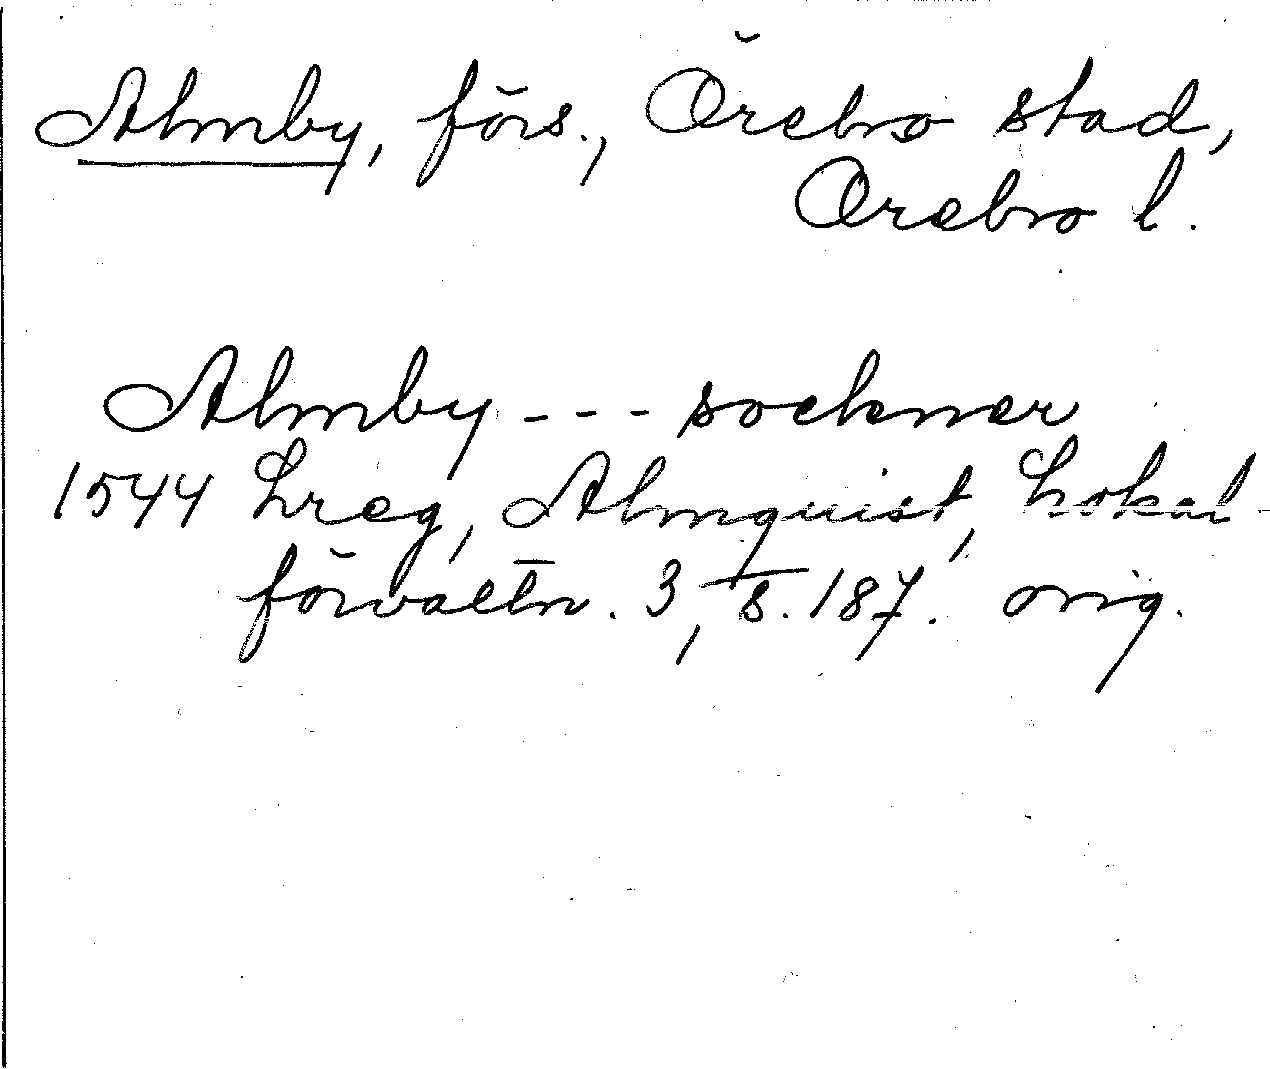 Almby, förs., Örebro stad,
Örebro l.
Almby --- sockner
1544 Lreg, Almquist, Lokal-
förvaltn. 3, s. 187. orig.